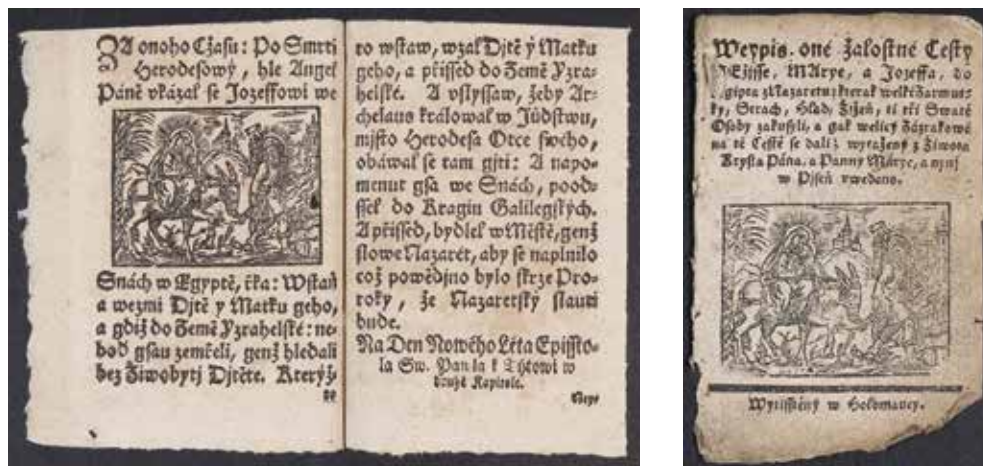 ZA onoho Cžasu: Po Smrti
Herodesowý, hle Angel
Páně vkázal se Jozeffowi we
Snách w Egyptě, řka: Wstaň
a wezmi Djtě ý Matku geho,
a gdiž do Země Yzrahelské: ne-
bod gsau zemřeli, genž hledali
bez Žiwobytj Djtěte. Kterýž-
to wstaw, wzal Djtě ý Matku
geho, a přissed do Země Yzra-
helské. A vslyssaw, žeby Ar-
chelaus králowal w Júdstwu,
mjsto Herodesa Otce swého,
obáwal se tam gjti: A napo-
menut gsa we Snách, pood-
ssel do Kragin Galilegských.
A přissed, bydlel w Městě, genž
slowe Nazarét, aby se naplnilo
což powědjno bylo skrze Pro-
roky, že Nazaretský slauti
bude.
Na Den Nowého Léta Epissto-
la Sw. Pavla k Týtowi w
druhé Kapitole.
Weypis oné žalostné Cesty
JEžjsse, MArye, a Jozeffa, do
Egipta z Nazaretu; kterak welké Zarmut-
ky, Strach, Hlad, Žjžeň, ti tři Swaté
Osoby zakusyli, a gak welicý Zázrakowé
na té Cestě se dali; wytažený z Žiwota
Krysta Pána, a Panny Márye, a nynj
w Pjseň vwedano.
Wytisstěný w Holomaucy.